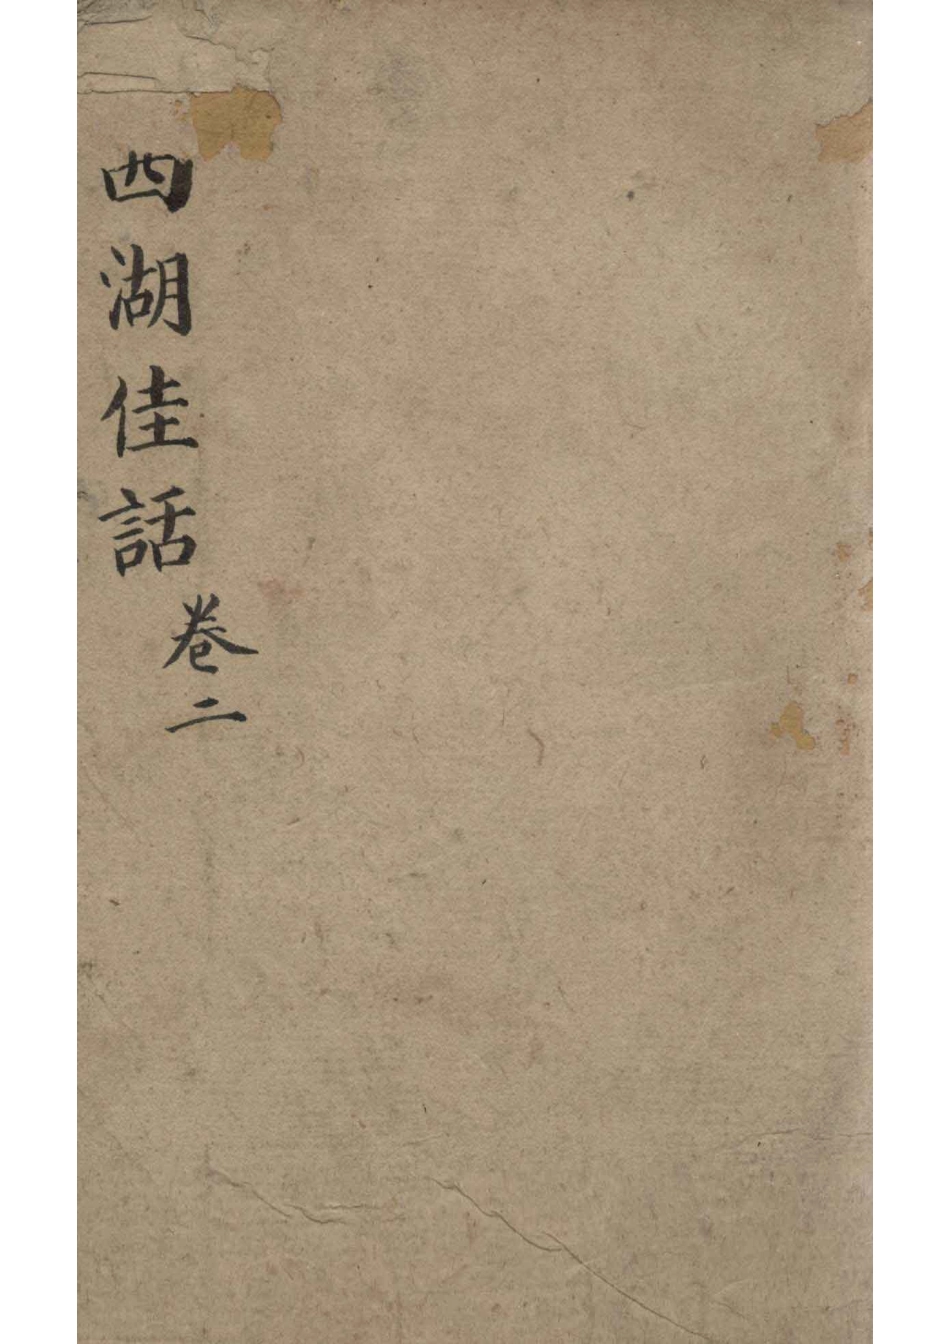 西湖佳話
卷二